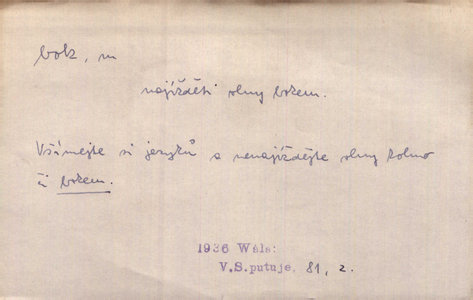 bok, m
najížděti vlny bokem.
Všímejte si jezyků a nenajíždějte vlny kolmo
či bokem.
1936 Wáls:
V.S.putuje, 81, 2.